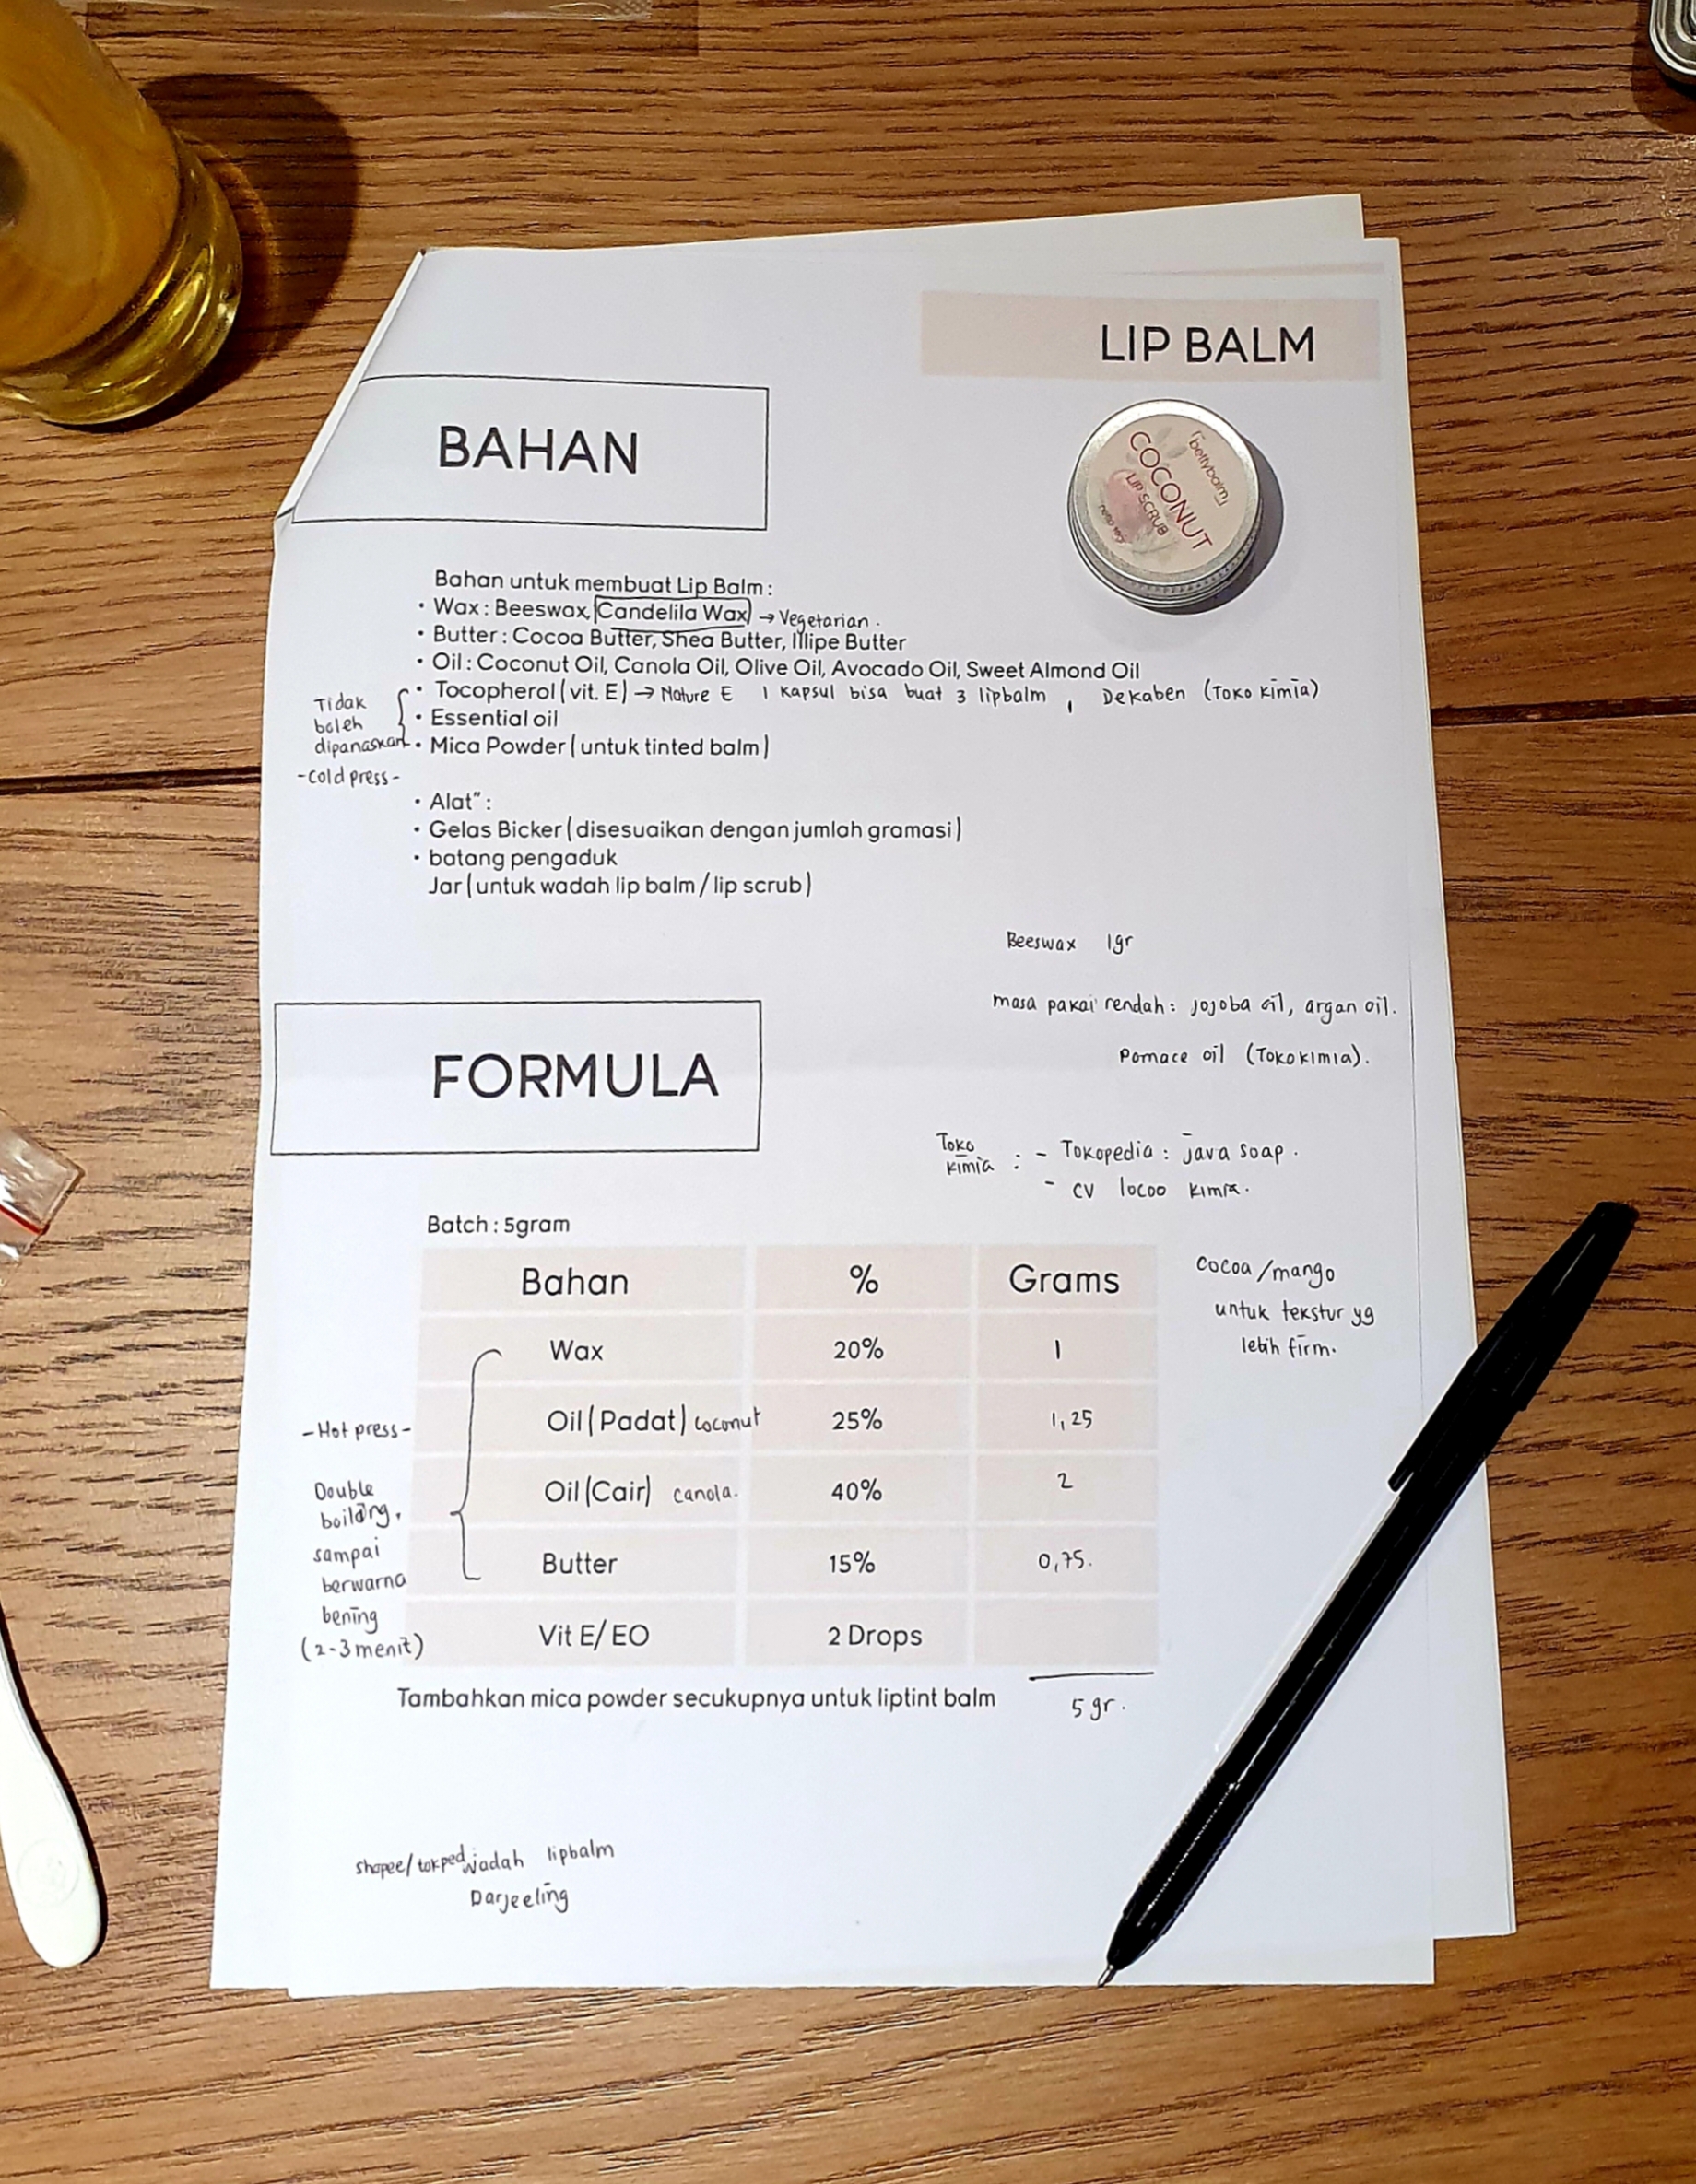 LIP BALM
BAHAN
bettybalm
COCONUT
LIP SCRUB
Bahan untuk membuat Lip Balm :
• Wax : Beeswax, Candelila Wax → Vegetarian .
• Butter : Cocoa Butter, Shea Butter, Illipe Butter
• Oil : Coconut Oil, Canola Oil, Olive Oil, Avocado Oil, Sweet Almond Oil
• Tocopherol (vit. E) → Nature E 1 kapsul bisa buat 3 lipbalm , Dekaben (Toko kimia)
• Essential oil
• Mica Powder (untuk tinted balm)
Tidak
boleh
dipanaskan
-cold press-
• Alat" :
• Gelas Bicker (disesuaikan dengan jumlah gramasi)
• batang pengaduk
Jar (untuk wadah lip balm / lip scrub)
Beeswax 1gr
masa pakai rendah : jojoba oil, argan oil.
Pomace oil (Toko kimia).
FORMULA
Toko
kimia : - Tokopedia : java soap .
- cv locoo kimia.
Batch : 5gram
Bahan % Grams
Wax 20% 1
Oil (Padat) coconut 25% 1,25
Oil (Cair) canola. 40% 2
Butter 15% 0,75.
Vit E/ EO 2 Drops
cocoa /mango
untuk tekstur yg
lebih firm.
-Hot press-
Double
boiling,
sampai
berwarna
bening
(2-3 menit)
Tambahkan mica powder secukupnya untuk liptint balm
5 gr.
shopee/ tokped wadah lipbalm
Darjeeling